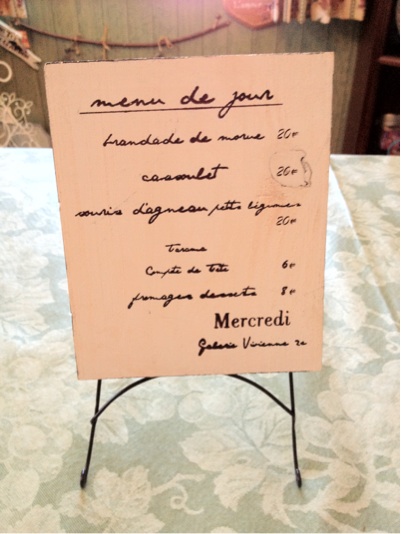 menu de jour
brandade de morue 20€
cassoulet 20€
souris d'agneau petits légumes
20€
Terrine
Compote de Tete 6€
fromages desserts 8€
Mercredi
Galerie Vivienne 2e